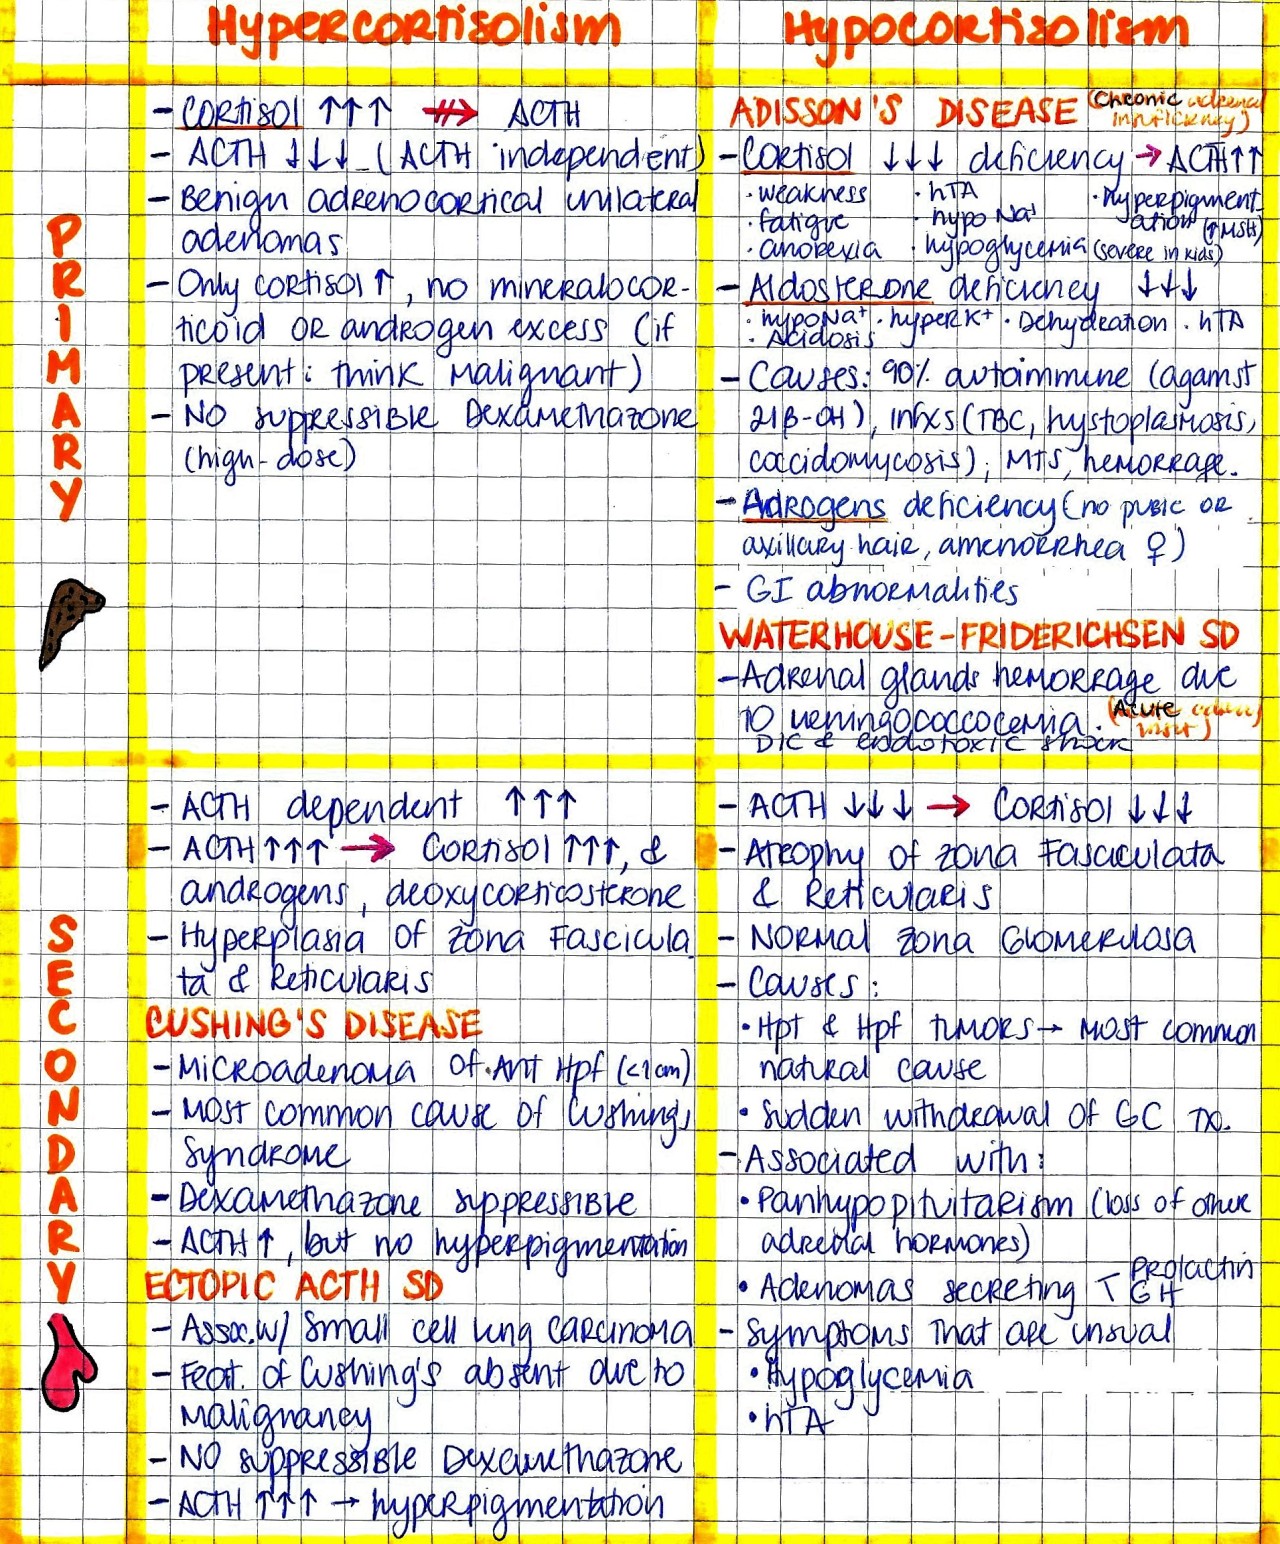 Hypercortisolism
Hypocortisolism
PRIMARY
- Cortisol ↑↑↑ ⇻ ACTH
- ACTH ↓↓↓ (ACTH independent)
- Benign adrenocortical unilateral
adenomas
- Only cortisol ↑, no mineralocor-
ticoid OR androgen excess (if
present: think malignant)
- NO suppressible Dexamethazone
(high-dose)
ADISSON'S DISEASE (Chronic adrenal
insuficiency)
- Cortisol ↓↓↓ deficiency → ACTH↑↑
· weakness · hTA · hyperpigment
· fatigue · hypo Na⁺ ation (↑MSH)
· anorexia · hypoglycemia (severe in kids)
- Aldosterone deficiency ↓↓↓
· hypoNa⁺ · hyperK⁺ · Dehydration · hTA
· Acidosis
- Causes: 90% autoimmune (against
21β-OH), infxs (TBC, hystoplasmosis,
coccidomycosis), MTS, hemorrage.
- Adrogens deficiency (no pubic OR
axillary hair, amenorrhea ♀)
- GI abnormalities
WATERHOUSE-FRIDERICHSEN SD
- Adrenal glands hemorrage due
to meningococcocemia. (Acute
DIC & endotoxic shock
SECONDARY
- ACTH dependent ↑↑↑
- ACTH ↑↑↑ → Cortisol ↑↑↑, &
androgens, deoxycorticosterone
- Hyperplasia of zona Fascicula
ta & Reticularis
CUSHING'S DISEASE
- Microadenoma of Ant Hpf (<1cm)
- Most common cause of Cushing's
syndrome
- Dexamethazone suppressible
- ACTH ↑, but no hyperpigmentation
ECTOPIC ACTH SD
- Assoc. w/ small cell lung carcinoma
- Feat. of Cushing's absent due to
malignancy
- NO suppressible Dexamethazone
- ACTH ↑↑↑ → hyperpigmentation
- ACTH ↓↓↓ → Cortisol ↓↓↓
- Atrophy of zona Fasciculata
& Reticularis
- Normal zona Glomerulosa
- Causes:
· Hpt & Hpf tumors → most common
natural cause
· Sudden withdrawal of GC TX.
- Associated with:
· Panhypopituitarism (loss of other
adrenal hormones)
· Adenomas secreting Prolactin
GH
- Symptoms that are unsual
· Hypoglycemia
· hTA